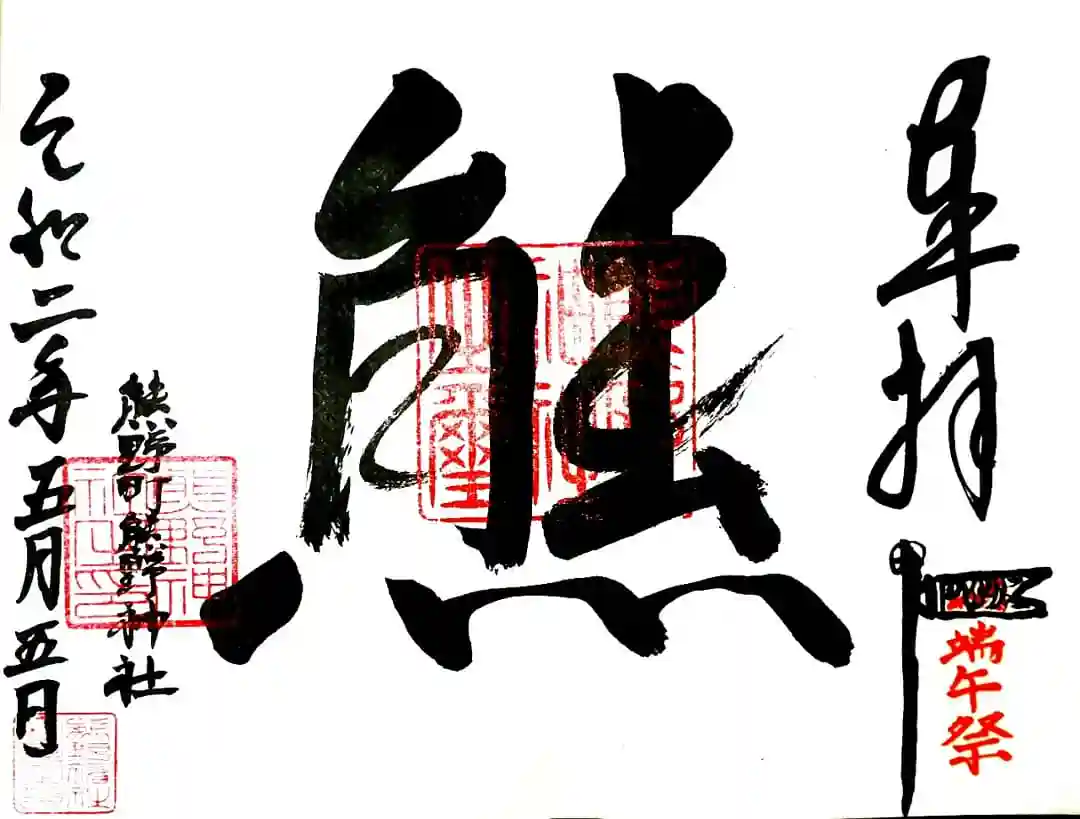 奉拝
端午祭
熊
熊野町熊野神社
令和二年五月五日